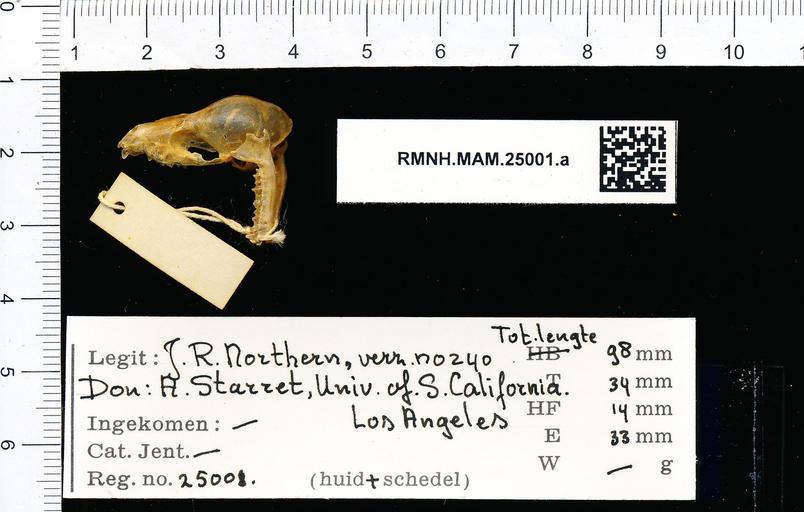 0 1 2 3 4 5 6 7 8 9 10
1
2
3
4
5
6
RMNH.MAM.25001.a
Tot.lengte
Legit: J.R. Northern, verz.no240 HB 98 mm
Don: A. Starret, Univ. of. S. California. T 34 mm
Los Angeles HF 14 mm
Ingekomen: — E 33 mm
Cat. Jent. — W — g
Reg. no. 25001. (huid+schedel)